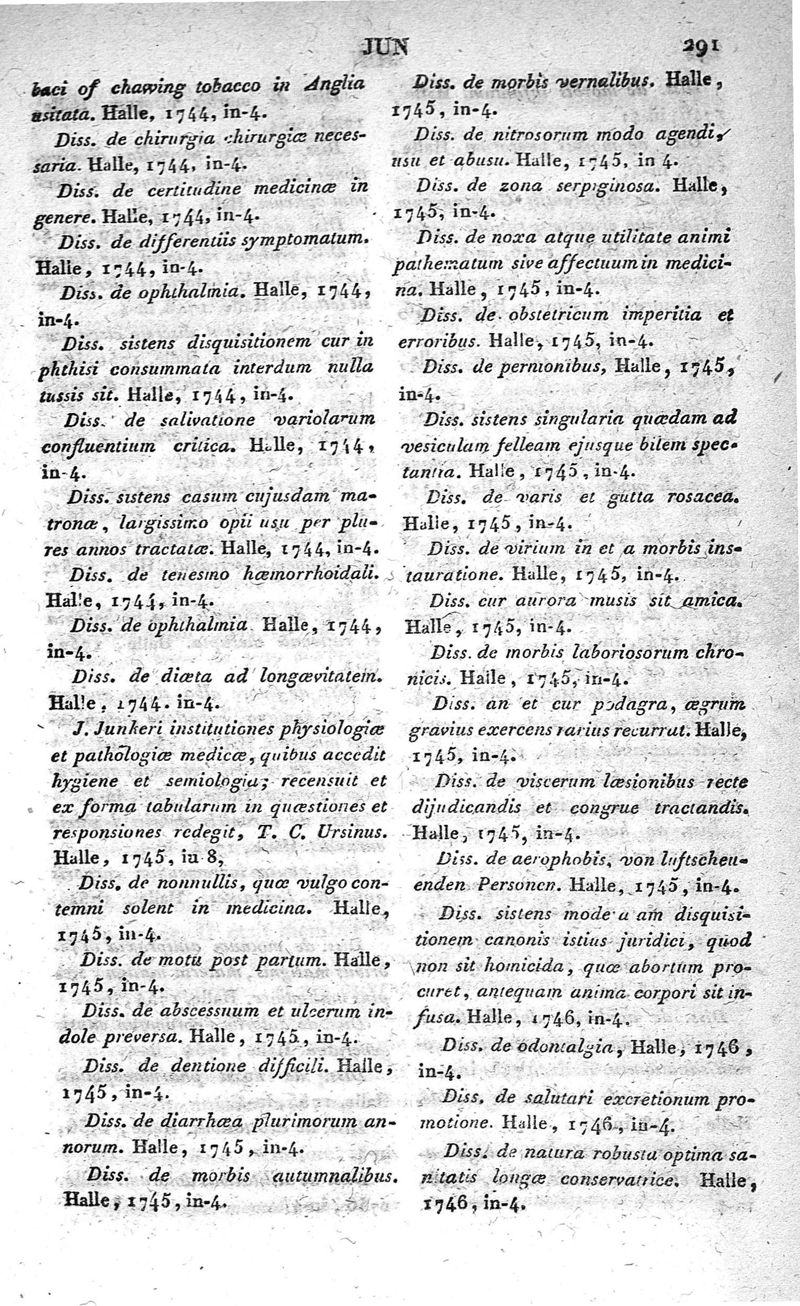 JUN 291
baci of chawing tobacco in Anglia
usitata. Halle, 1744, in-4.
Diss. de chirurgia chirurgiæ neces-
saria. Halle, 1744, in-4.
Diss. de certitudine medicinæ in
genere. Halle, 1744, in-4.
Diss. de differentiis symptomatum.
Halle, 1744, in-4.
Diss. de ophthalmia. Halle, 1744,
in-4.
Diss. sistens disquisitionem cur in
phthisi consummata interdum nulla
tussis sit. Halle, 1744, in-4.
Diss. de salivatione variolarum
confluentium critica. Halle, 1744,
in-4.
Diss. sistens casum cujusdam ma-
tronæ, largissimo opii usu per plu-
res annos tractatæ. Halle, 1744, in-4.
Diss. de tenesmo hæmorrhoidali.
Halle, 1744, in-4.
Diss. de ophthalmia Halle, 1744,
in-4.
Diss. de diæta ad longævitatem.
Halle, 1744. in-4.
J. Junkeri institutiones physiologiæ
et pathologiæ medicæ, quibus accedit
hygiene et semiologia; recensuit et
ex forma tabularum in quæstiones et
responsiones redegit, T. C. Ursinus.
Halle, 1745, in 8,
Diss. de nonnullis, quæ vulgo con-
temni solent in medicina. Halle,
1745, in-4.
Diss. de motu post partum. Halle,
1745, in-4.
Diss. de abscessuum et ulcerum in-
dole preversa. Halle, 1745, in-4.
Diss. de dentione difficili. Halle,
1745, in-4.
Diss. de diarrhœa plurimorum an-
norum. Halle, 1745, in-4.
Diss. de morbis autumnalibus.
Halle, 1745, in-4.
Diss. de morbis vernalibus. Halle,
1745, in-4.
Diss. de nitrosorum modo agendi,
usu et abusu. Halle, 1745, in 4.
Diss. de zona serpiginosa. Halle,
1745, in-4.
Diss. de noxa atque utilitate animi
pathematum sive affectuum in medici-
na. Halle, 1745, in-4.
Diss. de obstetricum imperitia et
erroribus. Halle, 1745, in-4.
Diss. de pernionibus, Halle, 1745,
in-4.
Diss. sistens singularia quædam ad
vesiculam felleam ejusque bilem spec-
tantia. Halle, 1745, in-4.
Diss. de varis et gutta rosacea.
Halle, 1745, in-4.
Diss. de virium in et a morbis ins-
tauratione. Halle, 1745, in-4.
Diss. cur aurora musis sit amica.
Halle, 1745, in-4.
Diss. de morbis laboriosorum chro-
nicis. Halle, 1745, in-4.
Diss. an et cur podagra, ægrum
gravius exercens rarius recurrat. Halle,
1745, in-4.
Diss. de viscerum læsionibus recte
dijudicandis et congrue tractandis.
Halle, 1745, in-4.
Diss. de aerophobis, von luftscheu-
enden Personen. Halle, 1745, in-4.
Diss. sistens disquisi-
tionem canonis istius juridici, quod
non sit homicida, quæ abortum pro-
curet, antequam anima corpori sit in-
fusa. Halle, 1746, in-4.
Diss. de odontalgia, Halle, 1746,
in-4.
Diss. de salutari excretionum pro-
motione. Halle, 1746, in-4.
Diss. de natura robusta optima sa-
nitatis longæ conservatrice. Halle,
1746, in-4.